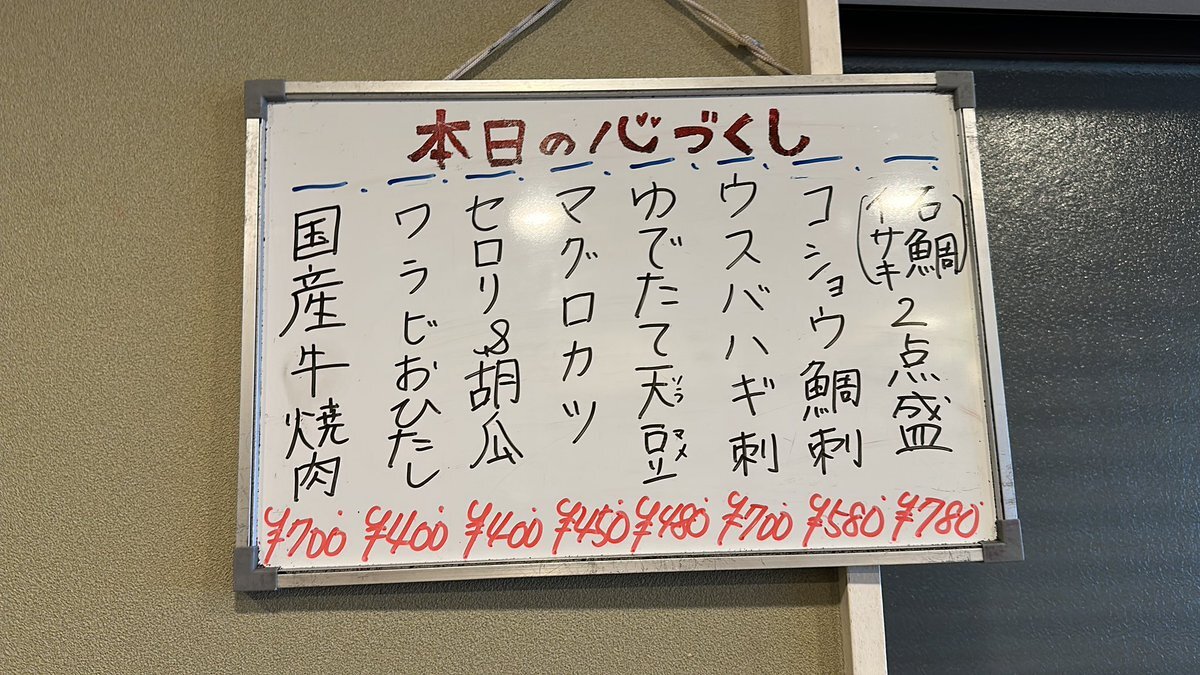 本日の心づくし
石鯛
(イサキ)
2点盛
¥780
コショウ鯛刺
¥580
ウスバハギ刺
¥700
ゆでたて天豆
ソラマメ
¥480
マグロカツ
¥450
セロリ&胡瓜
¥400
ワラビおひたし
¥400
国産牛焼肉
¥700